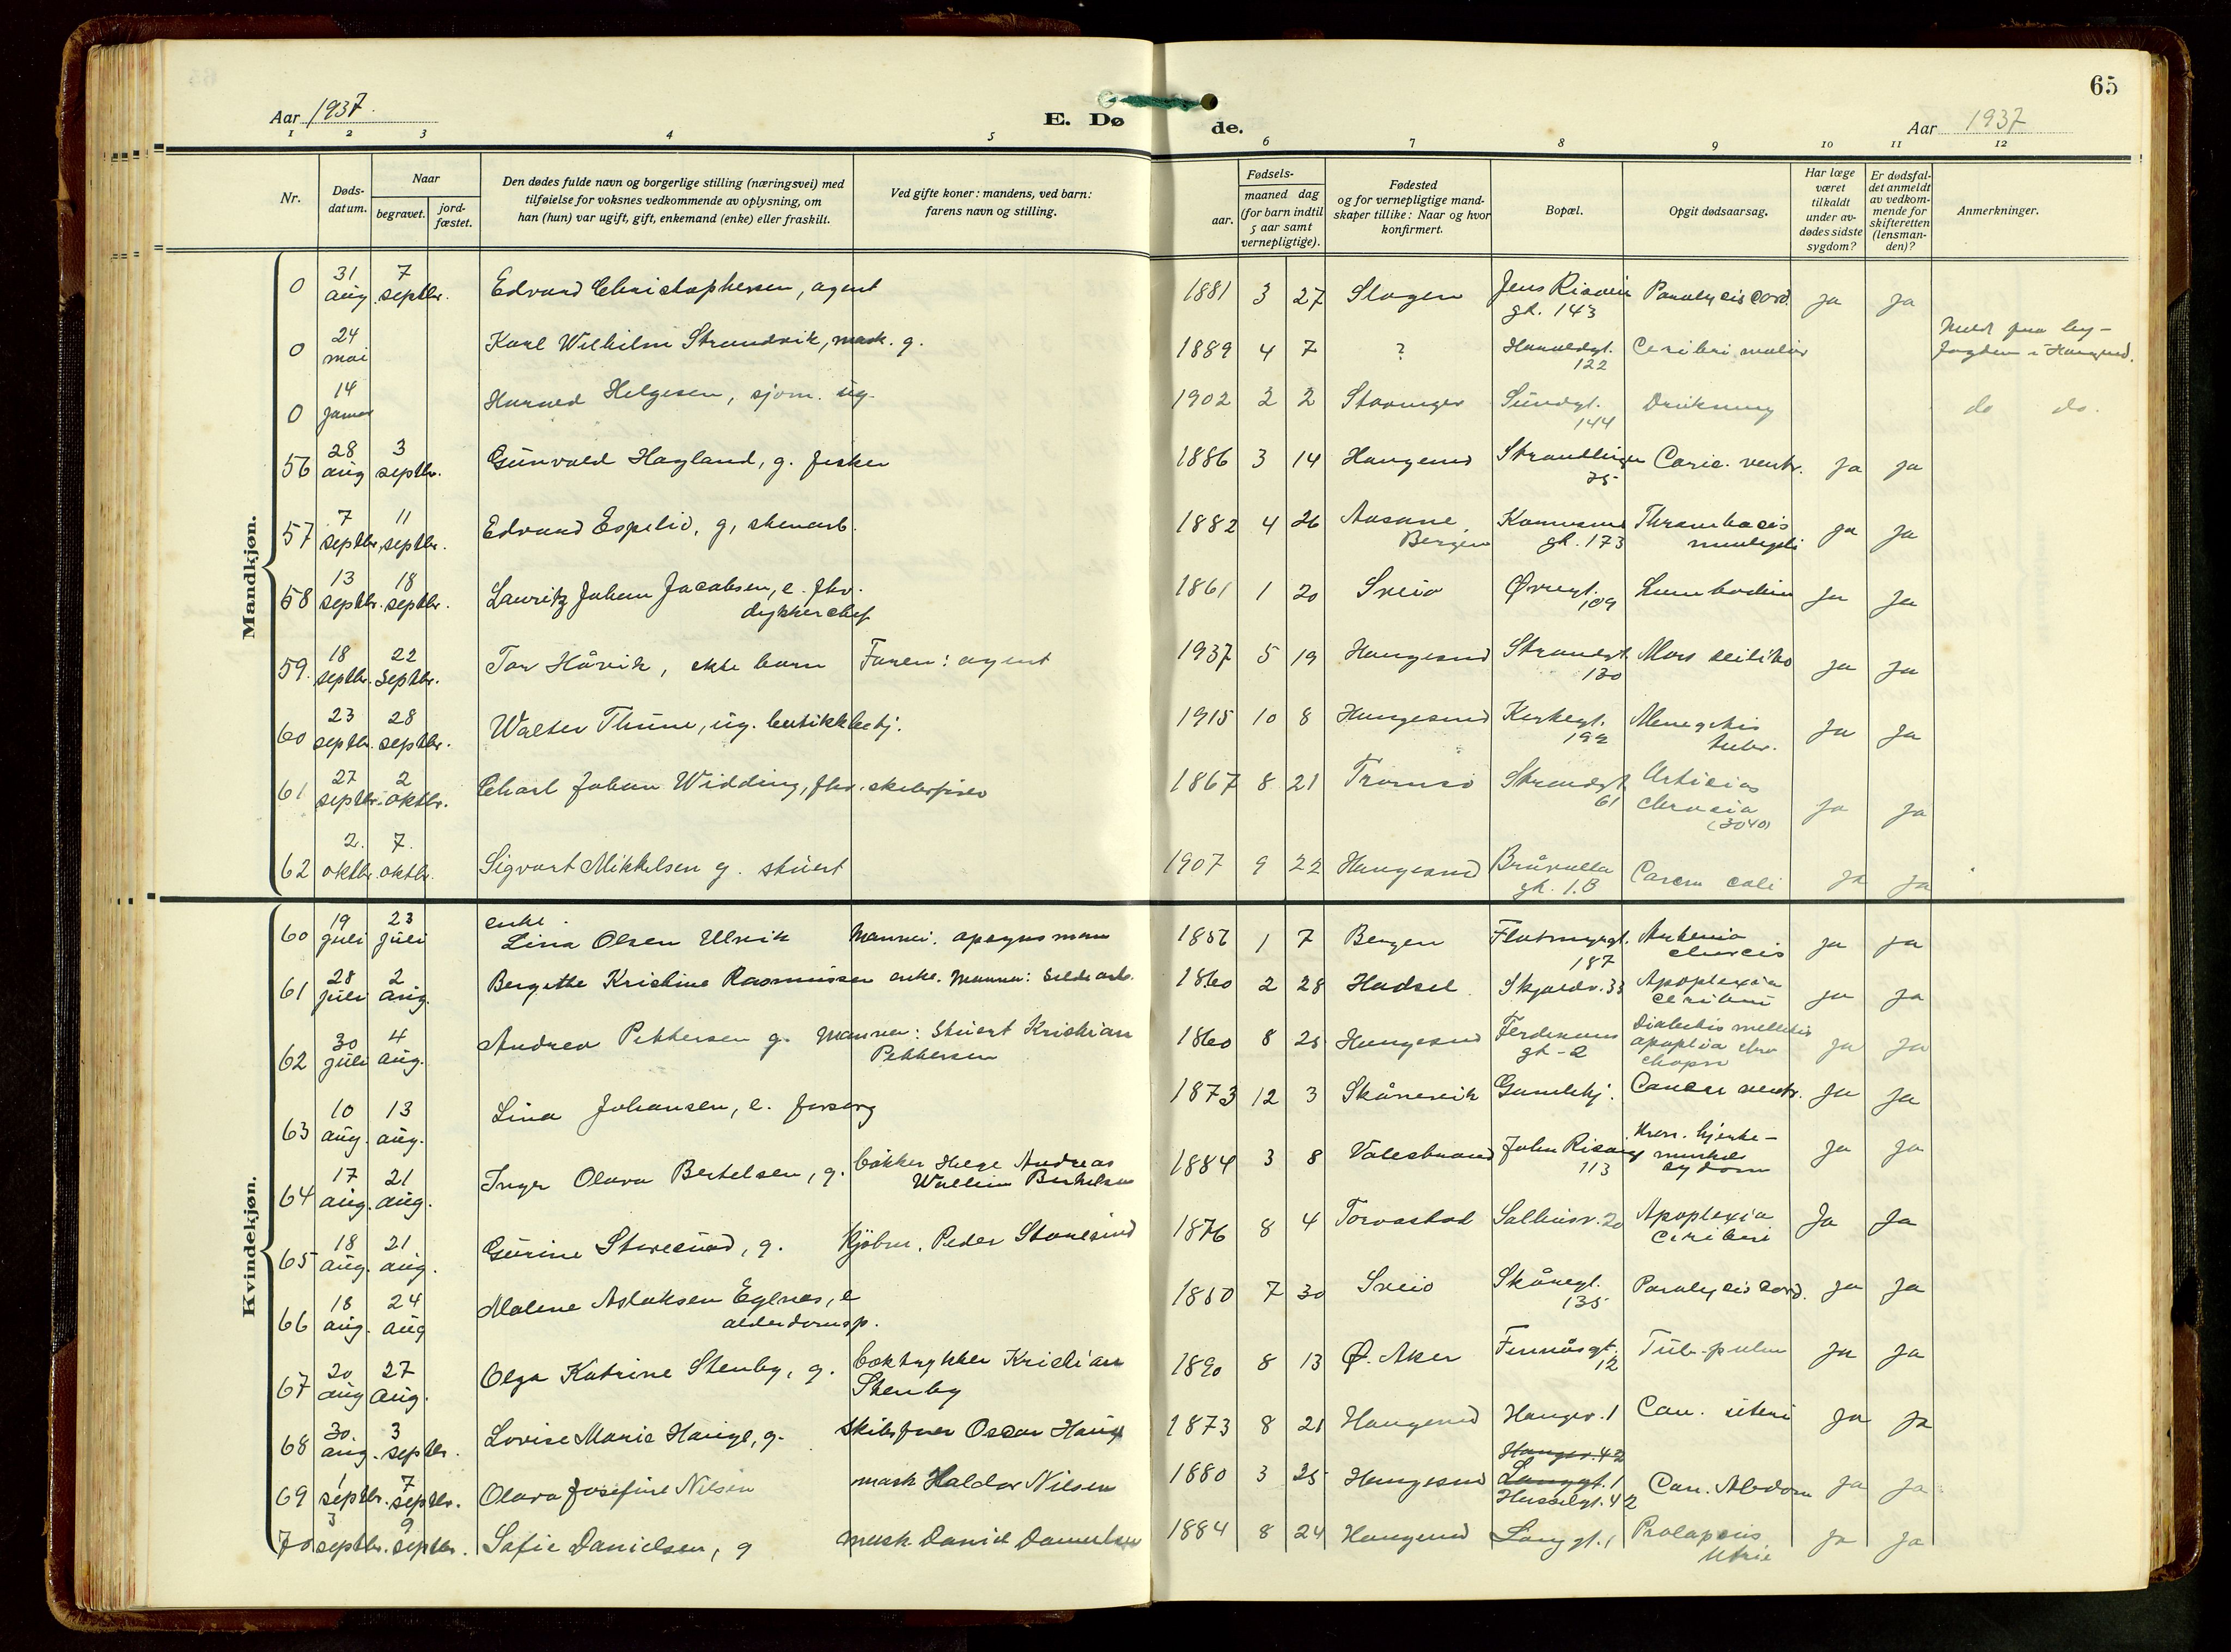 65
Aar 1937.
E. Dø de.
Aar 1937
1 2 3 4 5 6 7 8 9 10 11 12
Nr.
Døds-
datum.
Naar
begravet.
jord-
fæstet.
Den dødes fulde navn og borgerlige stilling (næringsvei) med
tilføielse for voksnes vedkommende av oplysning, om
han (hun) var ugift, gift, enkemand (enke) eller fraskilt.
Ved gifte koner: mandens, ved barn:
farens navn og stilling.
Fødsels-
aar.
maaned dag
(for barn indtil
5 aar samt
vernepligtige).
Fødested
og for vernepligtige mand-
skaper tillike: Naar og hvor
konfirmert.
Bopæl.
Opgit dødsaarsag.
Har læge
været
tilkaldt
under av-
dødes sidste
sygdom?
Er dødsfal-
det anmeldt
av vedkom-
mende for
skifteretten
(lensman-
den)?
Anmerkninger.
Mandkjøn.
0 31 aug. 7 septbr. Edvard Christophersen, agent 1881 3 27 Slagen gt. 143 Paralysis cord. ja ja
0 24 mai Karl Wilhilm Strandvik, mask. g. 1889 4 7 ? Haraldgt. 122
0 14 Januar Harald Helgesen, sjøm. ug. 1902 2 2 Stavanger Sundgt. 144 Drukning do do.
56 28 aug 3 septbr. Gunvald Hagland, g. fisker 1886 3 14 Haugesund 25 ventr. ja ja
57 7 septbr. 11 septbr. Edvard Espelid, g, stenarb. 1882 4 26 Aasane, Bergen gt. 173 ja ja
58 13 septbr. 18 septbr. Lauritz Johan Jacobsen, e. fhv.
dykkerchef 1861 1 20 Sveio Øvregt. 109 ja ja
59. 18 septbr. 22 septbr. Tor Håvik, ekte barn Faren: agent 1937 5 19 Haugesund Strandgt. 130 Mors ja ja
60 23 septbr. 28 septbr. Walter Thune, ug. butikkbetj. 1915 10 8 Haugesund Kirkegt. 192 tuber. ja ja
61 27 septbr. 2 oktbr. Charl Johan Widding, fhv. skibsfører 1867 8 21 Tromsø Strandgt. 61 ja ja
62 2. oktbr. 7. oktbr. Sigvart Mikkelsen g. stuert 1907 9 22 Haugesund gt. 1.B coli ja ja
Kvindekjøn.
60 19 juli 23 juli enke.
Lina Olsen Ulvik Mannen. opsynsmann 1856 1 7 Bergen Flotmyrgt. 187 ja ja
61 28 juli 2 aug. Bergitte Kristine Rasmussen enke. Mannen: Sildearb. 1860 2 28 Hadsel Skjoldv. 33 Apoplexia cerebri ja ja
62 30 juli 4 aug. Andrea Pettersen g. Mannen: Stuert Kristian
Pettersen 1860 8 25 Haugesund gt. 2 ja ja
63 10 aug. 13 aug. Lina Johansen, e. forsorg 1873 12 3 Skånevik Gamlehj. Cancer ventr. ja ja
64 17 aug. 21 aug. Inger Olava Bertelsen, g. bøkker Helge Andreas
Wallin Bertelsen 1884 3 8 Valestrand 113 Kron. hjerte-
muskel
sydom ja ja
65 18 aug. 21 aug. Gurine Storesund, g. Kjøbm. Peder Storesund 1876 8 4 Torvastad Salhusv. 20 Apoplexia
Cerebri ja ja
66 18 aug. 24 aug Malene Aslaksen Eglnes, e
alderdomsp. 1850 7 30 Sveio Skåregt. 135 Paralysis cord. ja ja
67 20 aug 27 aug. Olga Katrine Stenby, g. boktrykker Kristian
Stenby 1890 8 13 Ø. Aker 12 Tub. pulm ja ja
68 30. aug. 3 septbr. Lovise Marie Hauge, g. skibsfører Oscar Hauge 1873 8 21 Haugesund Haugev. 1 Can. uteri ja ja
69 1 septbr. 7 septbr. Olava Josefine Nilsen mask Haldor Nilsen 1880 3 25 Haugesund Haugev. 42
Langgt. 1
Hasselgt. 42 Can. Abdom ja ja
70 3 septbr. 9 septbr. Sofie Danielsen, g mask Daniel Danielsen 1884 8 24 Haugesund Langgt. 1 Prolapsus ja ja